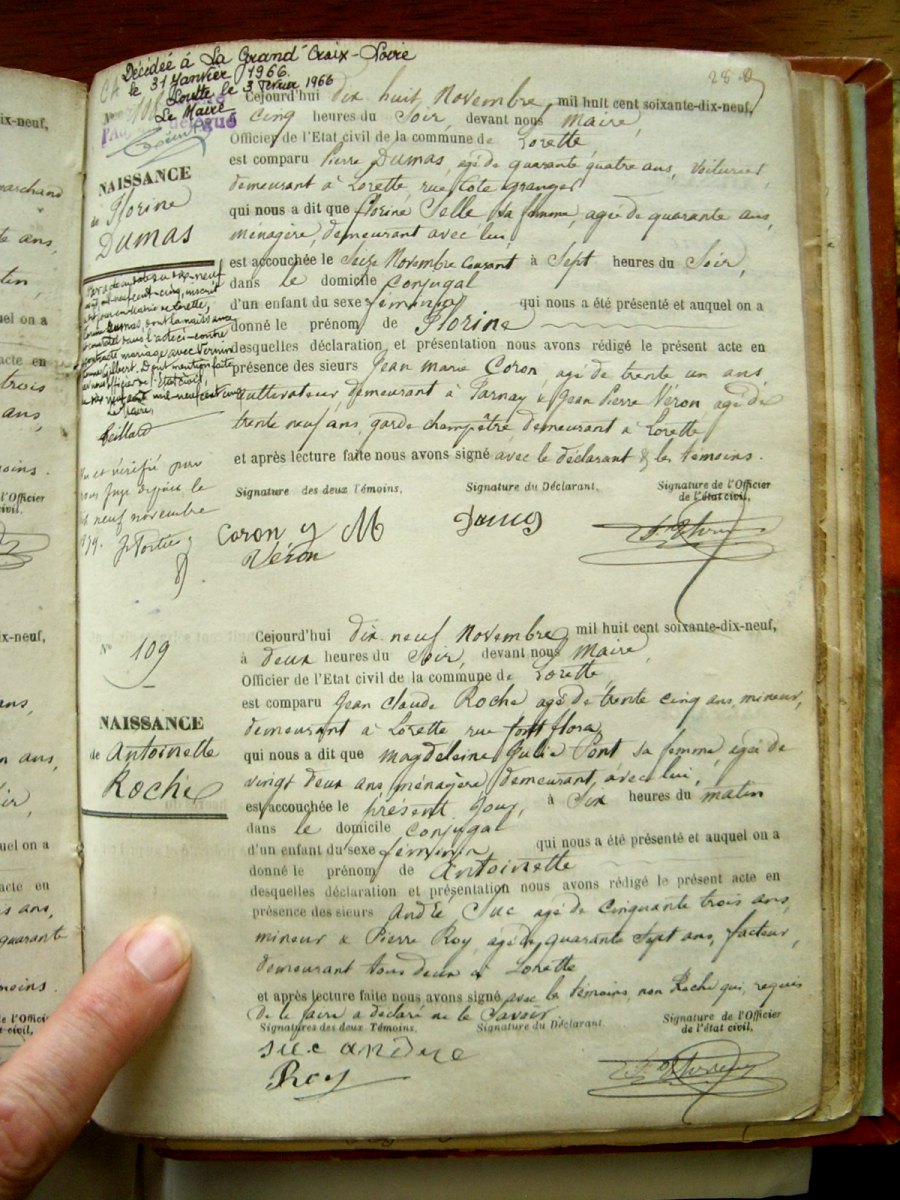 Décédée à La Grand'Croix-Loire
le 31 Janvier 1966.
Lorette le 3 Février 1966
Le Maire
28
NAISSANCE
de Florine
Dumas
Cejourd'hui dix huit Novembre mil huit cent soixante-dix-neuf,
à cinq heures du Soir, devant nous Maire,
Officier de l'Etat civil de la commune de Lorette
est comparu Pierre Dumas, agé de quarante quatre ans, Voiturier,
demeurant à Lorette, rue Côte Granger
qui nous a dit que Florine Selle sa femme, agée de quarante ans,
ménagère, demeurant avec lui,
est accouchée le Seize Novembre Courant à Sept heures du Soir,
dans le domicile Conjugal
d'un enfant du sexe féminin qui nous a été présenté et auquel on a
donné le prénom de Florine
desquelles déclaration, et présentation nous avons rédigé le présent acte en
présence des sieurs Jean Marie Coron agé de trente un ans
Cultivateur demeurant à Farnay & Jean Pierre Véron agé de
trente neuf ans, garde champêtre demeurant à Lorette
et après lecture faite nous avons signé avec le déclarant & les témoins.
mil-neuf-cent-cinq, inscrit
Dumas, dont la naissance
est constatée dans l'acte ci-contre
contracté mariage avec Vernin
Gilbert. Dont mention faite
par nous officier de l'Etat civil,
Le Maire,
Vu et vérifié par
nous Juge
neuf novembre
Signature des deux Témoins,
Signature du Déclarant,
Signature de l'Officier
de l'état civil,
Coron
Véron
Dumas
N° 109
NAISSANCE
de Antoinette
Roche
Cejourd'hui dix neuf Novembre mil huit cent soixante-dix-neuf,
à deux heures du Soir, devant nous Maire,
Officier de l'Etat civil de la commune de Lorette,
est comparu Jean Claude Roche agé de trente cinq ans, mineur,
demeurant à Lorette rue font flora
qui nous a dit que Magdeleine Julie Pont sa femme, agée de
vingt deux ans ménagère, demeurant, avec lui,
est accouchée le présent jour, à Six heures du matin
dans le domicile Conjugal
d'un enfant du sexe féminin, qui nous a été présenté et auquel on a
donné le prénom de Antoinette
desquelles déclaration, et présentation nous avons rédigé le présent acte en
présence des sieurs André Suc agé de Cinquante trois ans,
mineur & Pierre Roy, agé de quarante Sept ans, facteur,
demeurant tous deux à Lorette
et après lecture faite nous avons signé avec les témoins, non Roche qui, requis
de le faire a déclaré ne le Savoir
Signatures des deux Témoins,
Signature du Déclarant
Signature de l'Officier
de l'état civil,
Suc andré
Roy